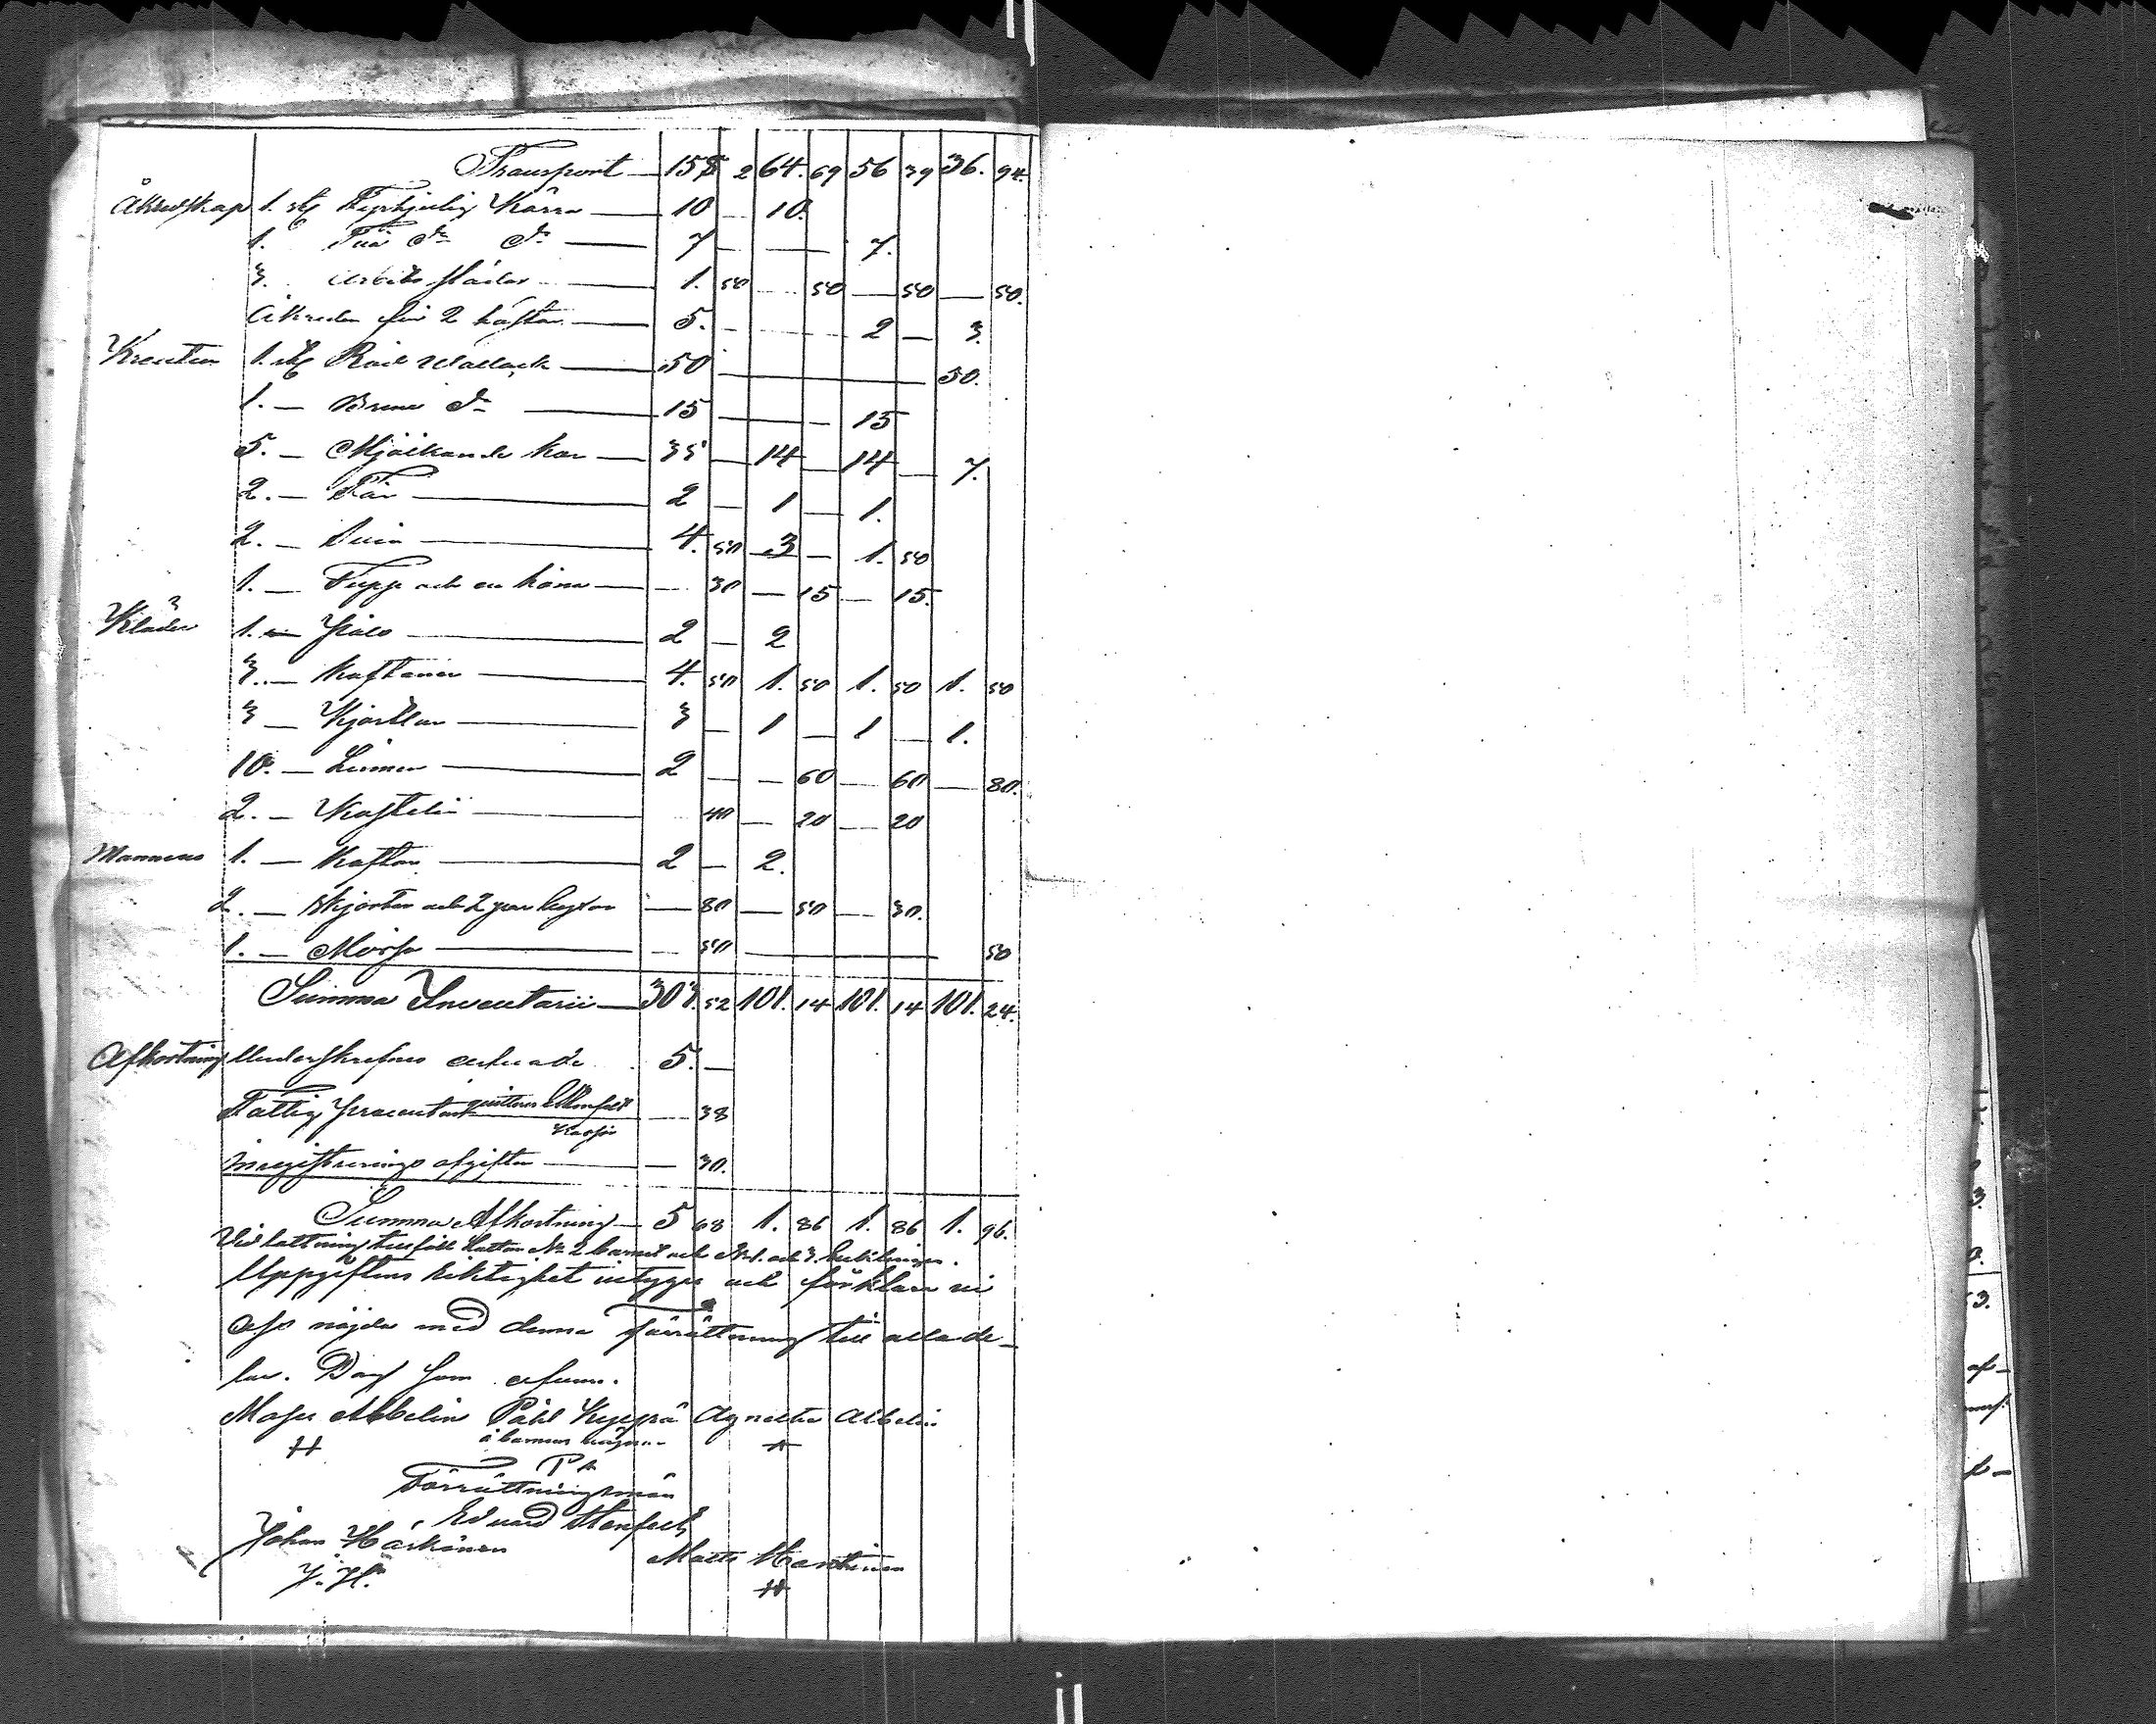 Transport — 158 2 64. 69 56 39 36. 94.
Åkredskap 1. st Fyrhjulig Kärra — 10 — 10.
1. Två do do — 7 — — 7.
3. Arbets slädar — 1. 50 — 50 — 50 — 50.
Åkreden för 2 hästar — 5. — 2 — 3.
Kreatur 1. st Röd Wallack — 50 — 50.
1. — Brun do — 15 — — 15
5. — Mjölkande kor — 35 — 14 — 14 — 7.
2. — Får — 2 — 1 — 1.
2. — Svin — 4. 50 3 — 1. 50
1. — Tupp och en höna — 30 — 15 — 15.
Kläder 1. — — 2 — 2
3. — Kaftaner — 4. 50 1. 50 1. 50 1. 50
3 — Kjortlar — 3 — 1 — 1 — 1.
10. — Linnen — 2 — — 60 — 60 — 80.
2. — — 40 — 20 — 20
Mannens 1. — Kaftan — 2 — 2.
2. — Skjortor och 2 par byxor — 80 — 50 — 30.
1. — Mössa — 50 — 50
Summa Inventarii — 303. 52 101. 14 101. 14 101. 24.
Afkortning Underskrefnes arfvode 5. —
Fattig procenten qvitteras — 38
Inregistrerings afgiften — 30.
Summa Afkortning — 5 68 1. 86 1. 86 1. 96.
Vid lottning tillföll Lotten No 2 barnet och No 1. och 3.
Uppgiftens riktighet intygas och förklara vi
oss nöjda med denna förrättning till alla de-
lar. Dag som ofvan.
Påhl Agnetha
å barnens vägnar
Förrättningsmän
Eduard
Johan Härkönen
Matts
J. H.